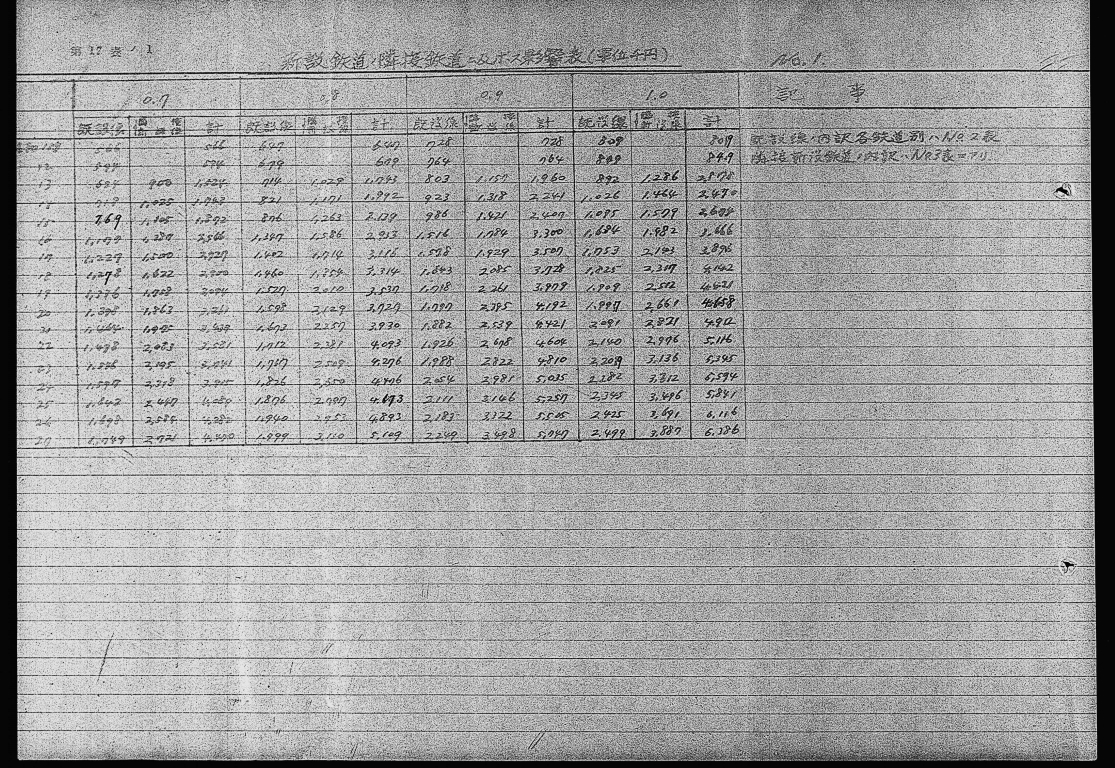 第 17 表ノ1
新設鉄道ノ隣接鉄道ニ及ボス影響表(單位千円) NO.1.
0.7 0.8 0.9 1.0 記事
既設線 計 既設線 計 既設線 計 既設線 計
566 566 647 647 728 728 809 809 既設線ノ内訳各鉄道別ハNO.2表
12 594 594 679 679 764 764 849 849 隣接新設鉄道ノ内訳ハNO.3表ニアリ
13 624 900 1,524 714 1,029 1,743 803 1,157 1,960 892 1,286 2,178
14 718 1,025 1,743 821 1,171 1,992 923 1,318 2,241 1,026 1,464 2,490
15 769 1,105 876 1,263 2,139 986 1,421 2,407 1,095 1,579 2,674
16 1,387 1,347 1,586 2,933 1,516 1,784 3,300 1,684 1,982 3,666
17 1,227 1,500 2,727 1,402 1,714 3,116 1,578 1,929 3,507 1,753 2,143 3,896
18 1,278 1,622 2,900 1,460 1,854 3,314 1,643 2,085 3,728 1,825 2,317 4,142
19 1,336 1,758 3,094 1,527 2,010 3,537 1,718 2,261 3,979 1,909 2,512 4,421
20 1,398 1,863 3,261 1,598 2,129 3,727 1,797 2,395 4,192 1,997 2,661 4,658
21 1,464 1,975 3,439 1,673 2,257 3,930 1,882 2,539 4,421 2,091 2,821 4,912
22 1,498 2,083 3,581 1,712 2,381 4,093 1,926 2,678 4,604 2,140 2,976 5,116
23 1,546 2,195 3,741 1,767 2,509 4,276 1,988 2,822 4,810 2,209 3,136 5,345
24 1,597 2,318 3,915 1,826 2,650 4,476 2,054 2,981 5,035 2,282 3,312 5,594
25 1,642 2,447 4,089 1,876 2,797 4,673 2,111 3,146 5,257 2,345 3,496 5,841
26 1,698 2,584 4,282 1,940 2,953 4,893 2,183 3,322 5,505 2,425 3,691 6,116
27 1,749 2,721 4,470 1,999 3,110 5,109 2,249 3,498 5,747 2,499 3,887 6,386